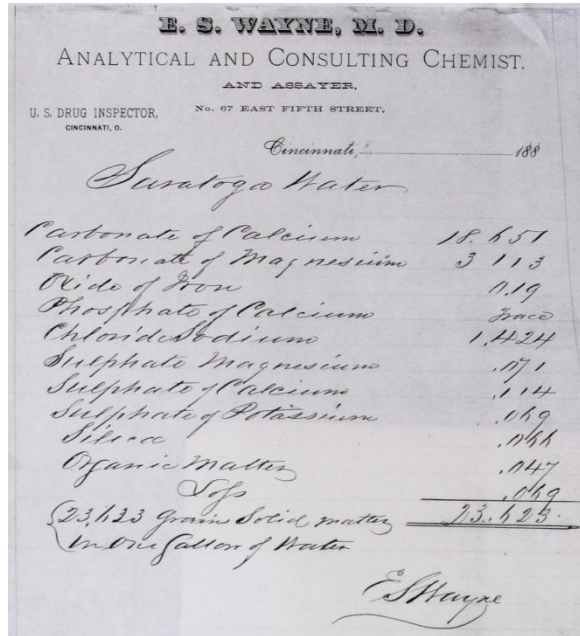 E. S. WAYNE, M. D.
ANALYTICAL AND CONSULTING CHEMIST,
AND ASSAYER,
No. 67 EAST FIFTH STREET,
U. S. DRUG INSPECTOR,
CINCINNATI, O.
Cincinnati, 188
Saratoga Water
Carbonate of Calcium 18.651
Carbonate of Magnesium 3 113
Oxide of Iron
Phosphate of Calcium Trace
Chloride Sodium 1.424
Sulphate Magnesium .071
Sulphate of Calcium .114
Sulphate of Potassium .069
Silica .066
Organic Matter .047
Loss .069
23.623 Grains Solid matter 23.623
in One Gallon of Water
E S Wayne